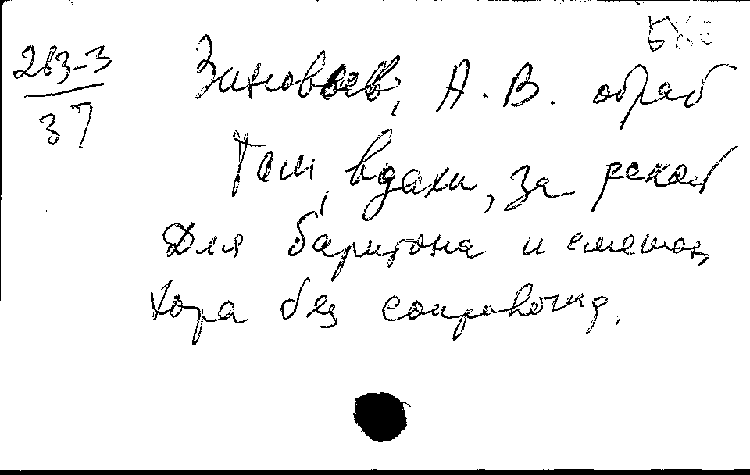 263-3
37
Зиновьев, А. В. обраб
Там, вдали, за рекой
Для баритона и смешан
хора без сопровожд.